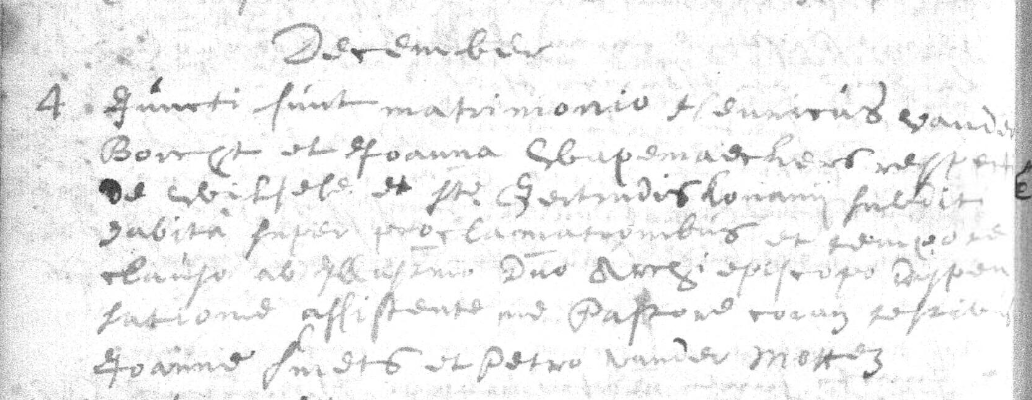 December
4 Juncti sunt matrimonio Henricus vander
Borcht et Joanna Wapemaeckers respect
de Wilsele et Ste Gertrudis Lovanii
habita super proclamationibus et tempore
clauso ab Illustrmo Dno Archiepiscopo dispen
satione assistente me Pastore coram testibus
Joanne Smets et Petro vander Motten